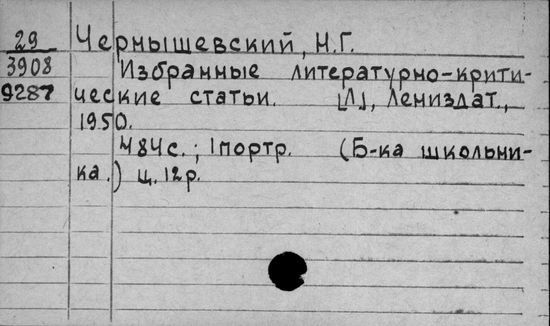 29 Чернышевский, Н.Г.
3908 Избранные литературно-крити-
9287 ческие статьи. [Л], Лениздат.,
1950.
484с.; 1портр. (Б-ка школьни-
ка.) ц. 12р.